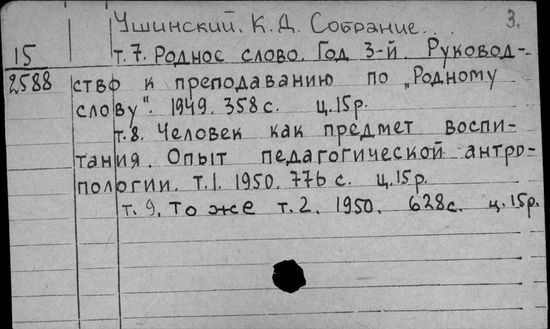 Ушинский, К.Д. Собрание... 3.
15 т.7. Родное слово. Год 3-й. Руковод-
2588 ство к преподаванию по „Родному
слову". 1949. 358 с. ц.15р.
т.8. Человек как предмет воспи-
тания. Опыт педагогической антро-
пологии. т.1. 1950. 776 с. ц.15р.
т.9. То же т.2. 1950. 628с. ц.15р.